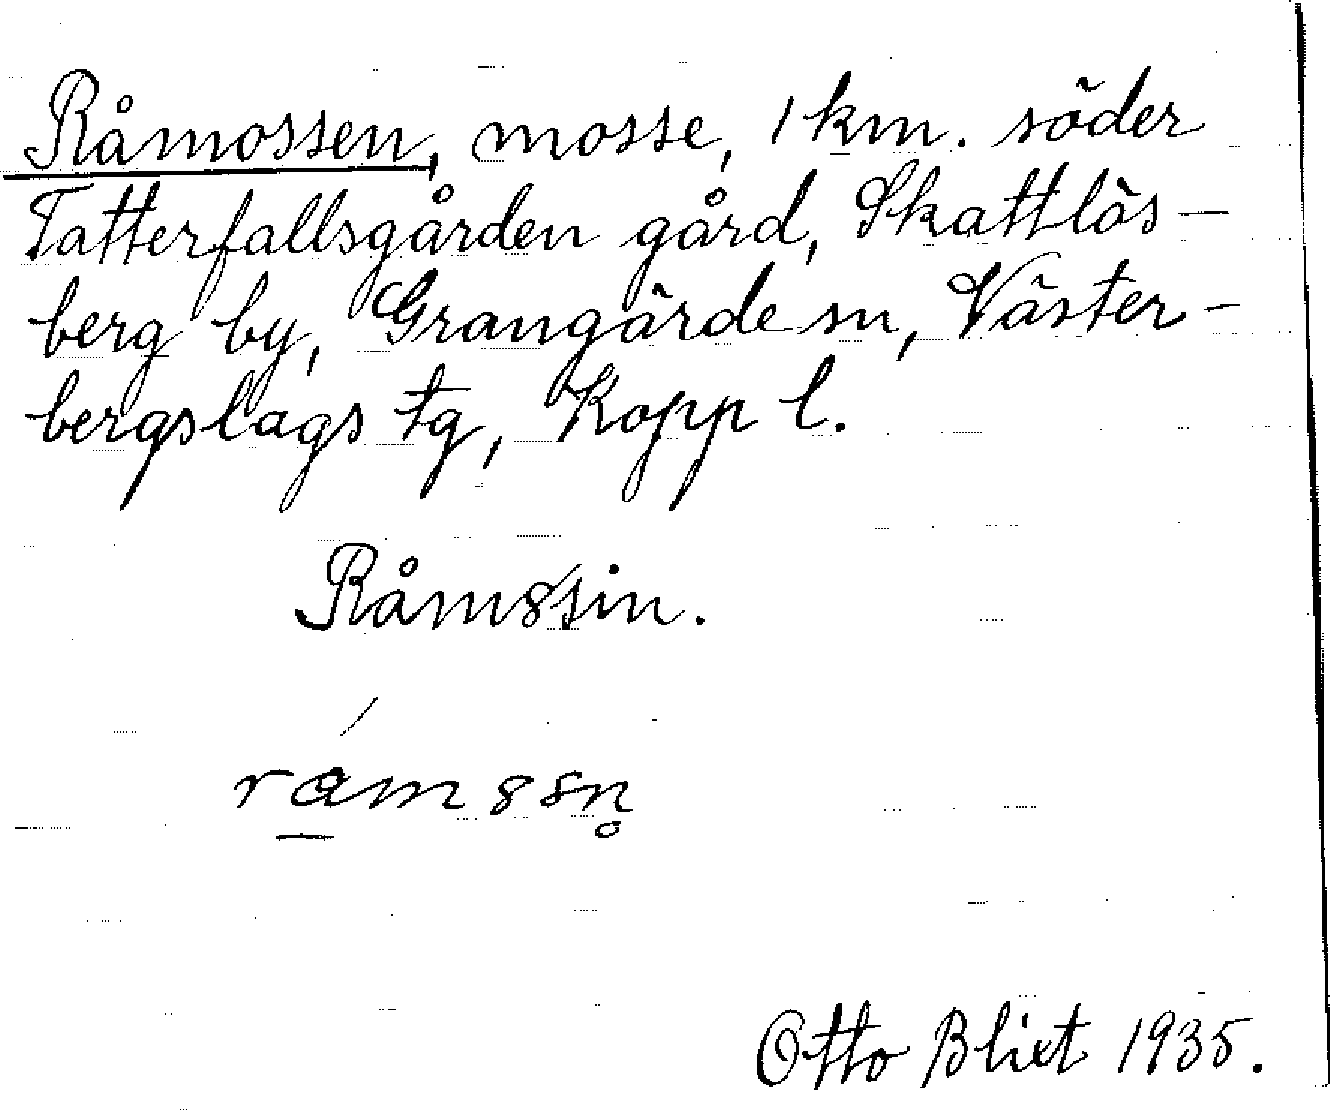 Råmossen, mosse, 1 km. söder
Tatterfallsgården gård, Skattlös-
berg by, Grangärde sn, Väster-
bergslags tg, Kopp l.
Råm8sin.
råm8sn̥
Otto Blixt 1935.